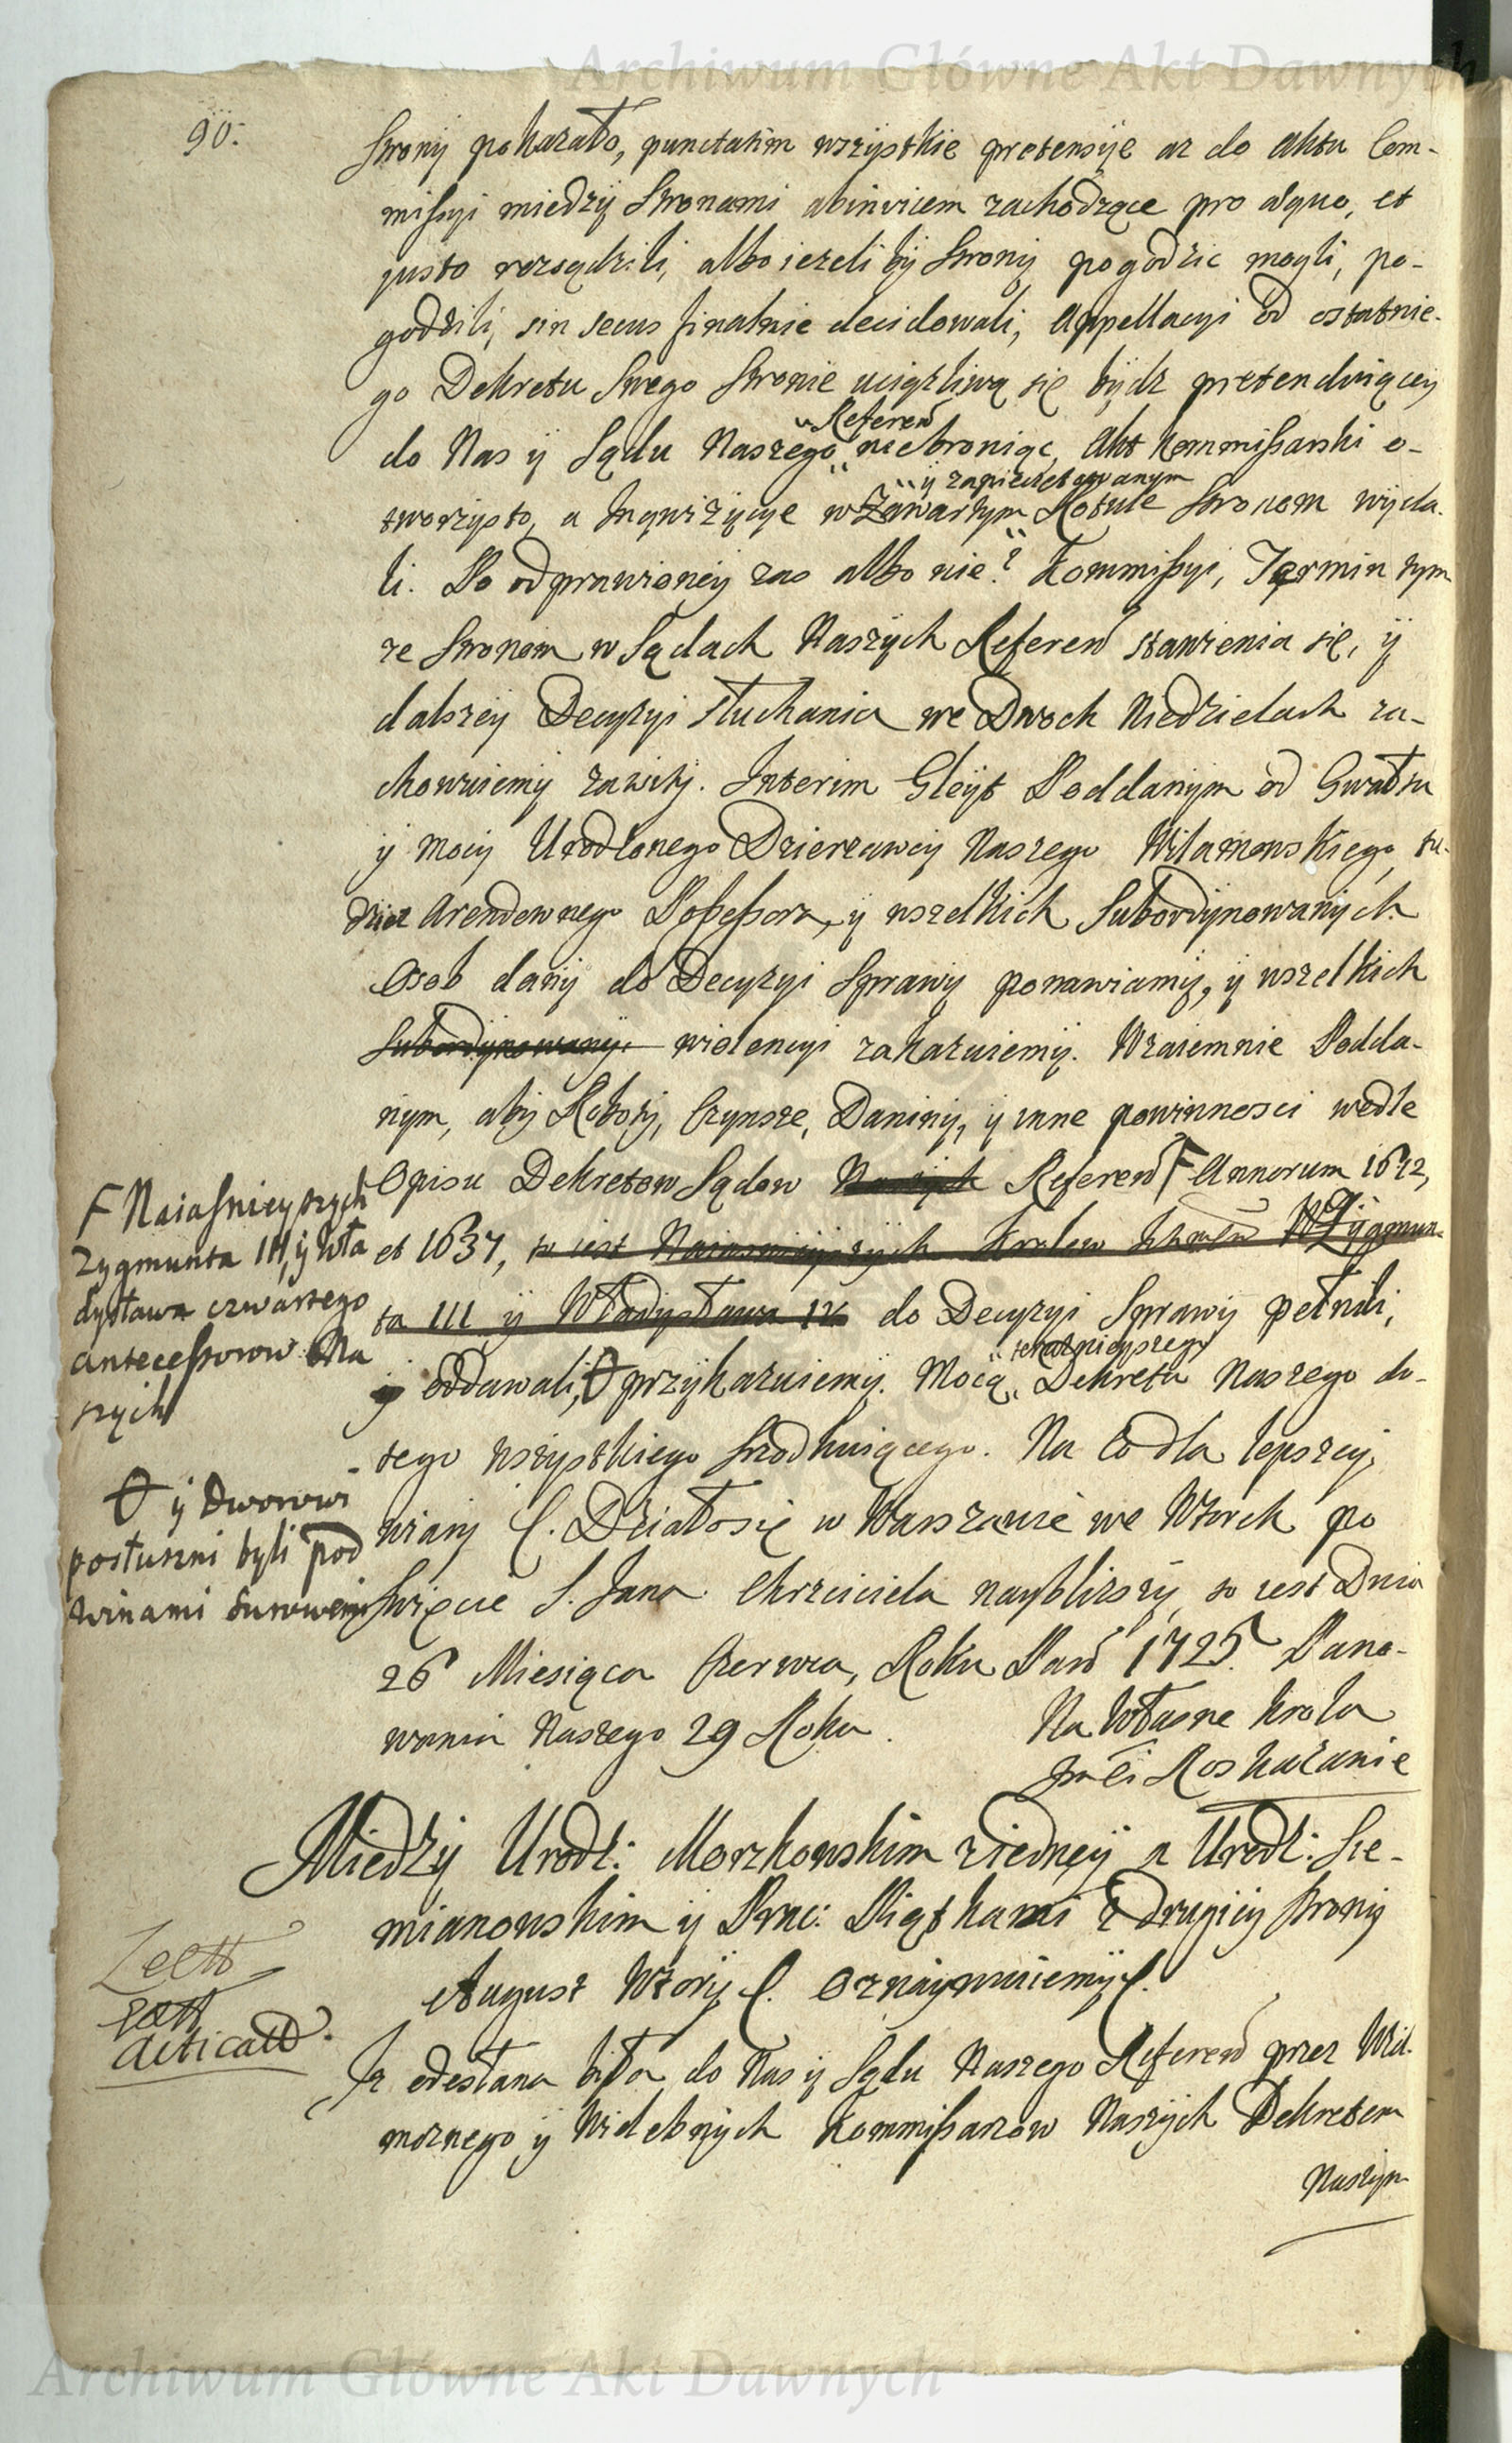 Archiwum Główne Akt Dawnych
90.
Strony pokazało, punctatim wszystkie pretensye az do aktu Com-
missyi między Stronami abinvicem zachodzące pro aequo, et
justo rozsądzili, albo iezeli by Strony pogodzic mogli, po-
godzili, sin secus finalnie decidowali, Appellacyi od ostatnie-
go Dekretu Swego Stronie uciązliwą się bydz pretenduiącey
Referen
do Nas y Sądu Naszego nie broniąc, Akt Kommissarski o-
y zapieczętowanym
tworzysto, a Inqwizycye w Zawartym Rotule Stronom wyda-
li. Po odprawioney zas albo nie? Kommissyi, Termin tym
ze Stronom w Sądach Naszych Referen stawienia się, y
dalszey Decyzyi słuchania we Dwoch Niedzielach za-
chowuiemy zawity. Interim Gleyt Poddanym od Gwałtu
y Mocy Urodzonego Dzierzawcy Naszego Wilamowskiego, tu-
dziez Arendownego Possessora, y wszelkich Subordynowanych
Osob dany do Decyzyi Sprawy ponawiamy, y wszelkich
Subordynowany violencyi zakazuiemy. Wzaiemnie Podda-
nym, aby Roboty, Czynsze, Daniny, y inne powinnosci wedle
Opisu Dekretow Sądow Naszych Referen F Annorum 1612,
et 1637, to iest Naiasnieyszych Krolow Zygmun-
ta III y Władysława IV do Decyzyi Sprawy pełnili,
teraznieyszego
y oddawali, przykazuiemy. Mocą Dekretu Naszego do-
tego wszystkiego srodkuiącego. Na Co dla lepszey
wiary C. Działo się w Warszawie we Wtorek po
Swięcie S. Jana Chrzciciela nayblizszy, to iest Dnia
26 Miesiąca Czerwca, Roku Pan 1725. Pano-
wania Naszego 29 Roku.
Na Własne Krola
Jmci Roskazanie
F Naiasnieyszych
Zygmunta III, y Wła
dysława czwartego
Antecessorow Na
szych
y Dworowi
posłuszni byli pod
winami surowemi
Między Urodz: Morzkowskim z iedney a Urodz: Sie-
mianowskim y Prac: Piątkami z drugiey Strony
August Wtory C. Oznaymuiemy C.
Iz odesłana była do Nas y Sądu Naszego Referen przez Wiel-
moznego y Wielebnych Kommissarzow Naszych Dekretem
Naszym
Archiwum Główne Akt Dawnych